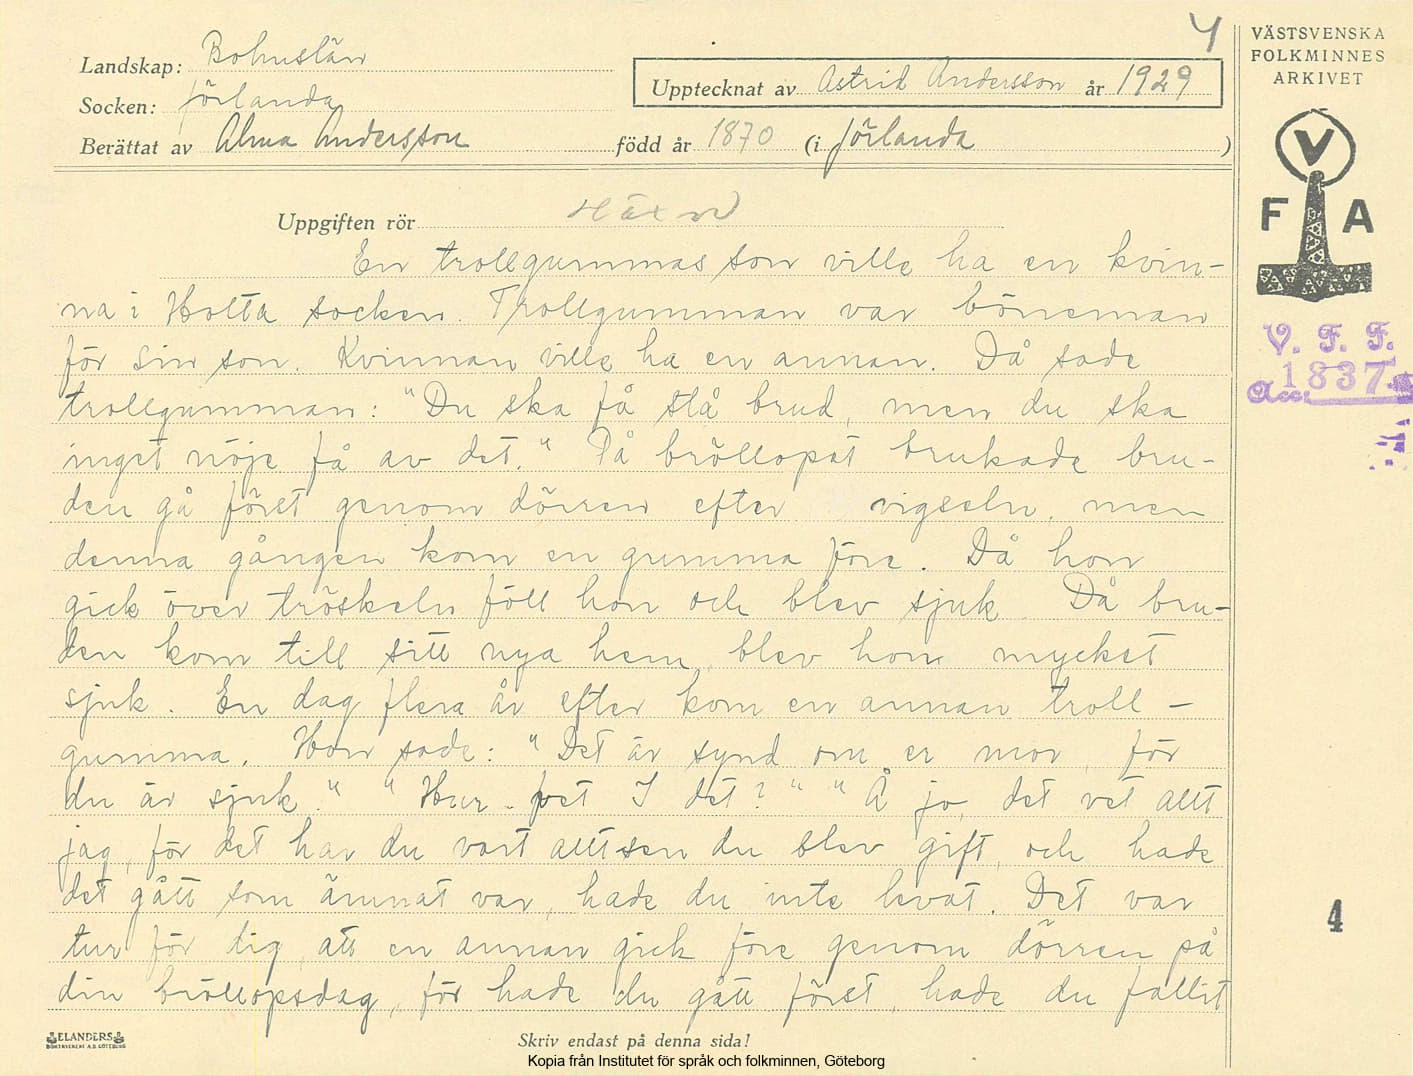 4
VÄSTSVENSKA
FOLKMINNES
ARKIVET
Landskap: Bohuslän
Upptecknat av Astrid Andersson år 1929
Socken: Jörlanda
Berättat av Alma Andersson född år 1870 (i Jörlanda )
V
F A
Uppgiften rör Häxor
En trollgummas son ville ha en kvin-
na i Holta socken. Trollgumman var böneman
för sin son. Kvinnan ville ha en annan. Då sade
trollgumman: "Du ska få stå brud, men du ska
inget nöje få av det." På bröllopet brukade bru-
den gå först genom dörren efter vigseln, men
denna gången kom en gumma före. Då hon
gick över tröskeln föll hon och blev sjuk. Då bru-
den kom till sitt nya hem, blev hon mycket
sjuk. En dag flera år efter kom en annan troll-
gumma. Hon sade: "Det är synd om er mor, för
du är sjuk." "Hur vet I det?" "Å jo, det vet allt
jag, för det har du vart alltsen du blev gift, och hade
det gått som ämnat var, hade du inte levat. Det var
tur för dig, att en annan gick före genom dörren på
din bröllopsdag, för hade du gått först, hade du fallit
V. F. F.
Acc. 1837
4
ELANDERS
BOKTRYCKERI A.B. GÖTEBORG
Skriv endast på denna sida!
Kopia från Institutet för språk och folkminnen, Göteborg